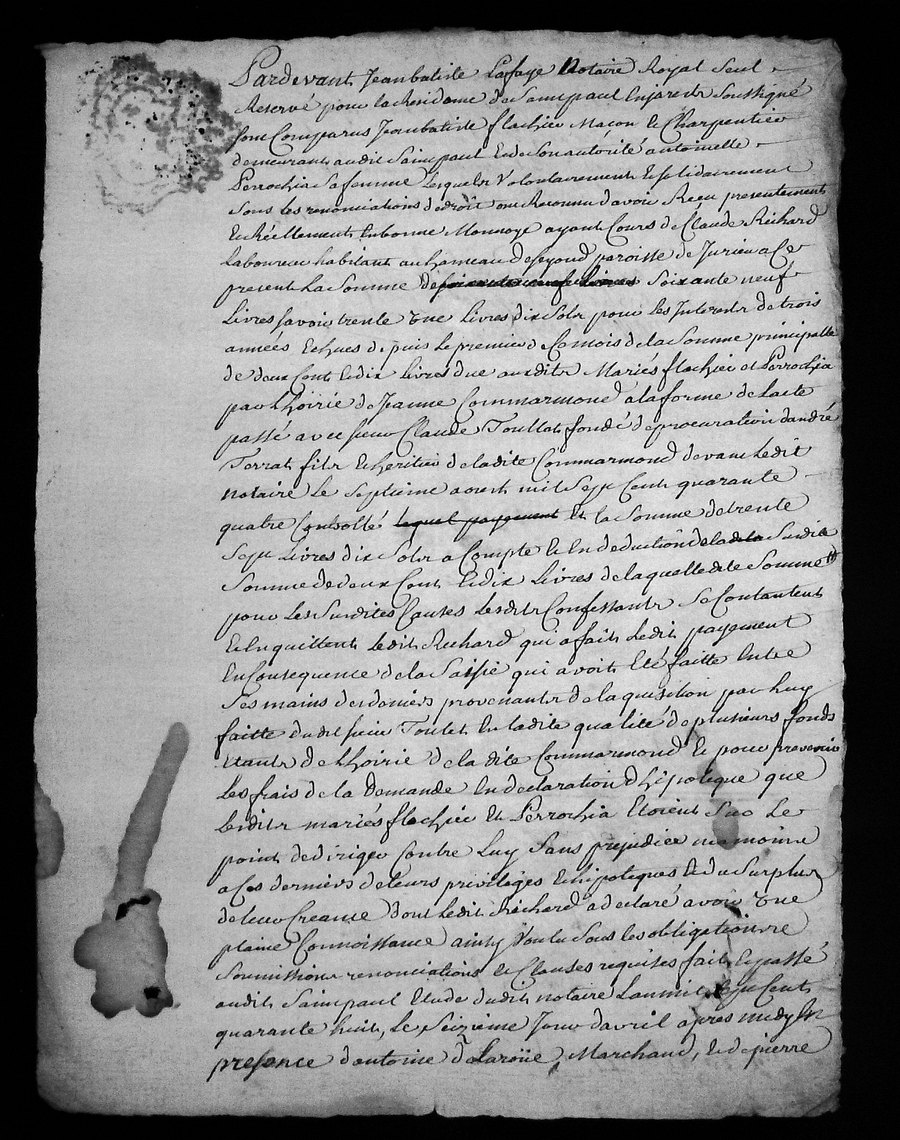 Pardevant Jeanbatiste Lafaye Notaire Royal Seul
Reservé pour la Residence de Sainpaul Enjarest Soussigné
Sont Comparus Jeanbatiste flachiee Macon & Charpentier
demeurant audit Sainpaul Et de Son autorité antoinette
Perrochia Sa femme lesquels Volontairement & Solidairement
Sous les renonciations de droit ont Reconnu d'avoir Receu presentement
Et Réellement En bonne Monnoye ayant Cours de Claude Richard
laboureur habitant au hameau de paroisse de Jurieu a Ce
present La Somme de soixante neuf livres Soixante neuf
Livres savoir trente une Livres dix Sols pour les Interets de trois
années Echues depuis le premier de Ce mois de la Somme principalle
de deux Cent & dix Livres due auxdits Mariés flachiee et Perrochia
par Lhoirie de Jeanne Commarmond a la forme de Lacte
passé avec sieur Claude Toullet fondé de procuration d'andré
Terrat fils & heritier de ladite Commarmond devant Ledit
notaire Le Septieme aoust mil Sept Cent quarante
quatre Controllé lequel payement Et la Somme de trente
Sept Livres dix Sols a Compte & En deduction de la Susdite
Somme de deux Cent & dix Livres de laquelle dite Somme
pour les Susdites Causes Lesdits Confessants Se Contantent
Et En quittent Ledit Richard qui a fait Ledit payement
En Consequence de la Saisie qui avoit Eté faitte Entre
Ses mains des deniers provenants de laquisition par Luy
faitte dudit sieur Toulet En ladite qualité de plusieurs fonds
Etants de Lhoirie de la dite Commarmond & pour prevenir
Les frais de la Demande En declaration d'hipoteque que
Lesdits mariés flachiee Et Perrochia Etoient Sur Le
point de diriger Contre Luy Sans prejudice neanmoins
a Ces derniers de leurs privileges & hipoteques & du Surplus
de leur Creance dont Ledit Richard a declaré avoir Une
plaine Connoissance ainsy Voulu Sous les obligations
Soumissions renonciations & Clauses requises fait & passé
audit Sainpaul Etude dudit notaire Lan mil Sept Cent
quarante huit, Le Seizieme Jour d'avril apres midy En
presence d'antoine delaroüe Marchand, & de pierre